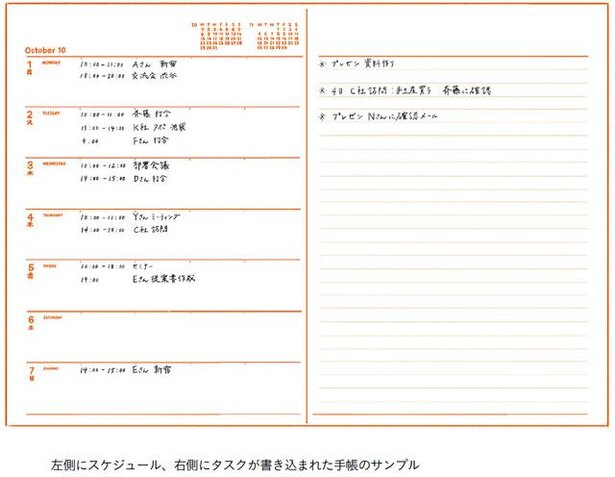 October 10
10 M T W T F S S
11 M T W T F S S
1 月 MONDAY
10:00-11:00 Aさん 新宿
18:00-20:00 交流会 渋谷
2 火 TUESDAY
10:00-11:00 斉藤 打合
13:00-14:00 K社 アポ 池袋
Fさん 打合
3 水 WEDNESDAY
10:00-12:00 部署会議
14:00-15:00 Dさん 打合
4 木 THURSDAY
10:00-11:00 Yさん ミーティング
14:00-15:00 C社 訪問
5 金 FRIDAY
セミナー
19:00 Eさん 提案書作成
6 土 SATURDAY
7 日 SUNDAY
14:00-15:00 Eさん 新宿
※ プレゼン 資料作り
※ 4日 C社訪問:手土産買う 斉藤に確認
※ プレゼン Nさんに確認メール
左側にスケジュール、右側にタスクが書き込まれた手帳のサンプル